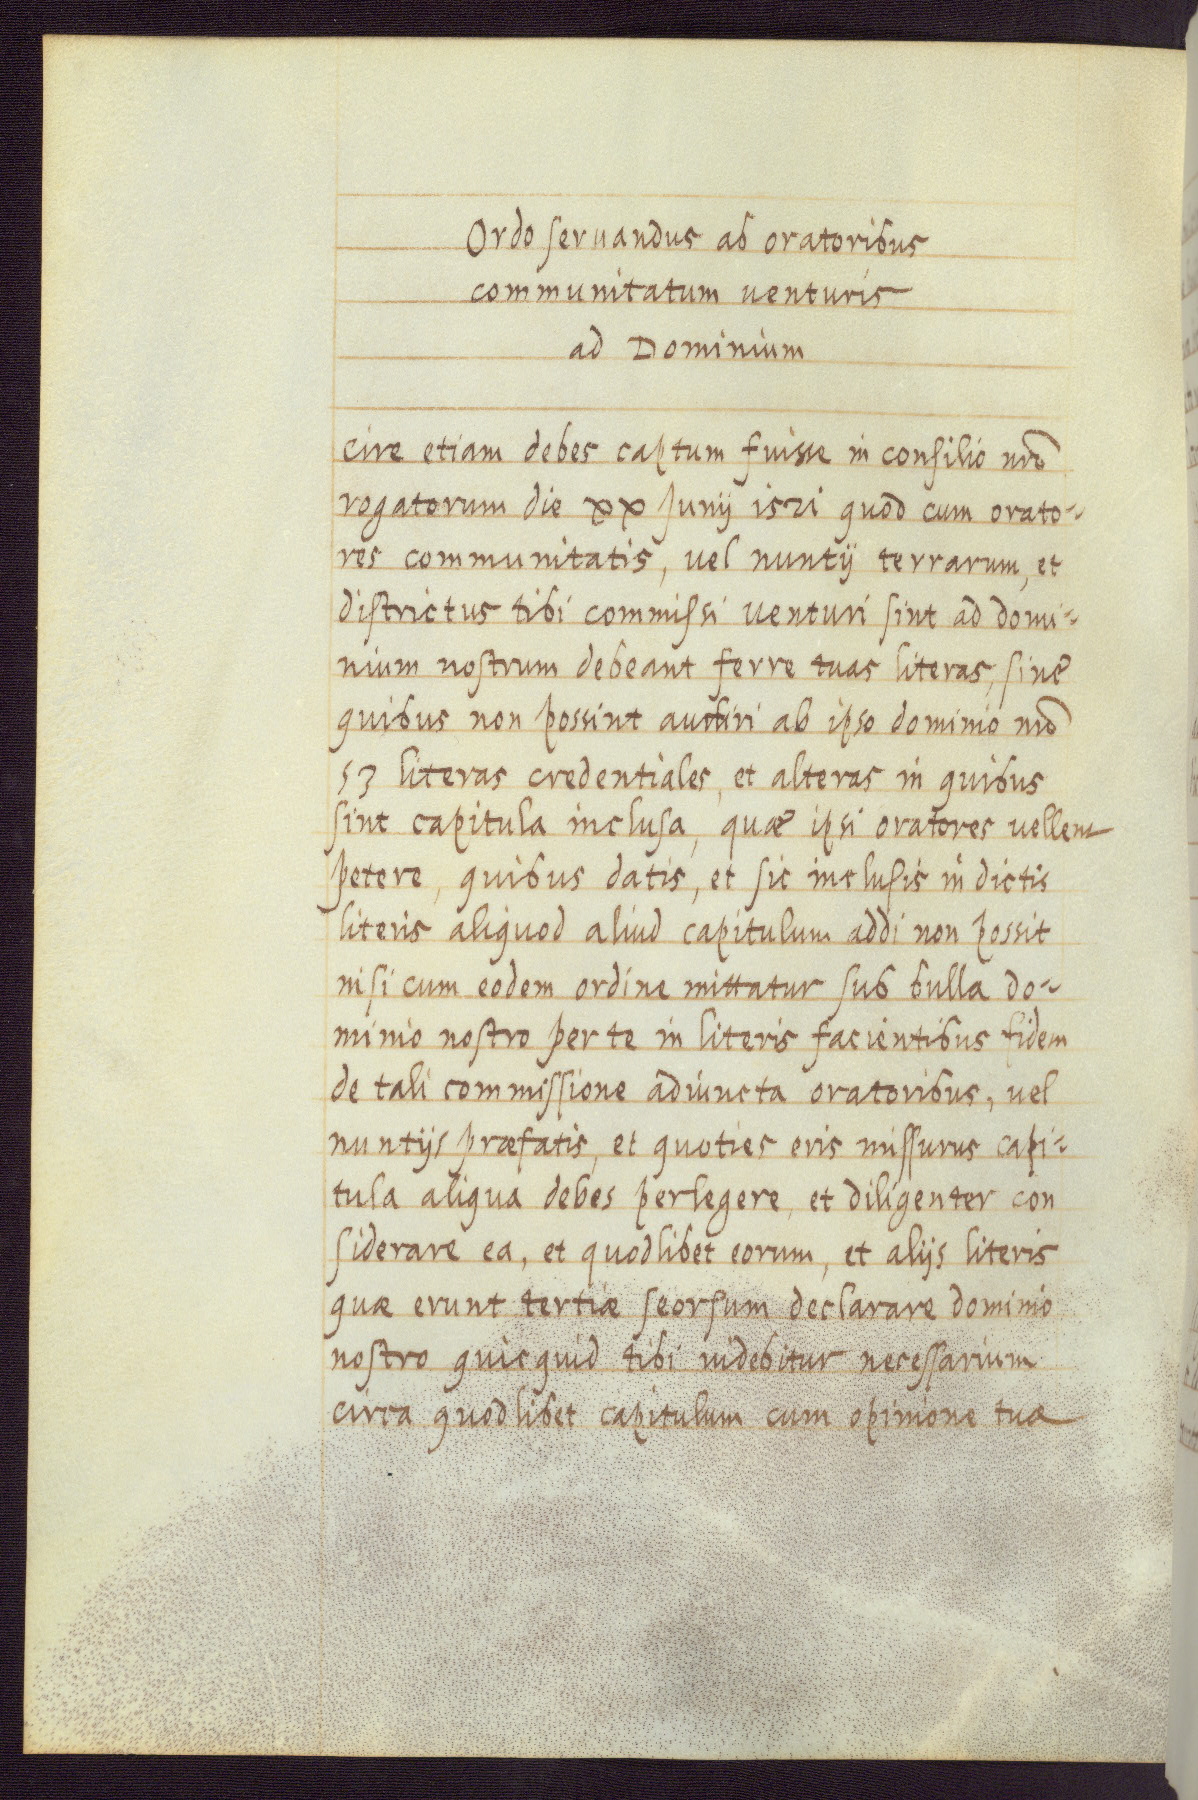 Ordo seruandus ab oratoribus
communitatum venturis
ad Dominium
cire etiam debes captum fuisse in consilio nrō
rogatorum die xx Junij 1521 quod cum orato-
res communitatis, vel nuntij terrarum, et
districtus tibi commissi venturi sint ad domi-
nium nostrum debeant ferre tuas literas, sine
quibus non possint audiri ab ipso dominio nrō
sz literas credentiales, et alteras in quibus
sint capitula inclusa, quæ ipsi oratores vellent
petere, quibus datis, et sic inclusis in dictis
literis aliquod aliud capitulum addi non possit
nisi cum eodem ordine mittatur sub bulla do-
minio nostro per te in literis facientibus fidem
de tali commissione adiuncta oratoribus, vel
nuntijs præfatis, et quoties eris missurus capi-
tula aliqua debes perlegere, et diligenter con
siderare ea, et quodlibet eorum, et alijs literis
quæ erunt tertiæ seorsum declarare dominio
nostro quicquid tibi uidebitur necessarium
circa quodlibet capitulum cum opinione tua